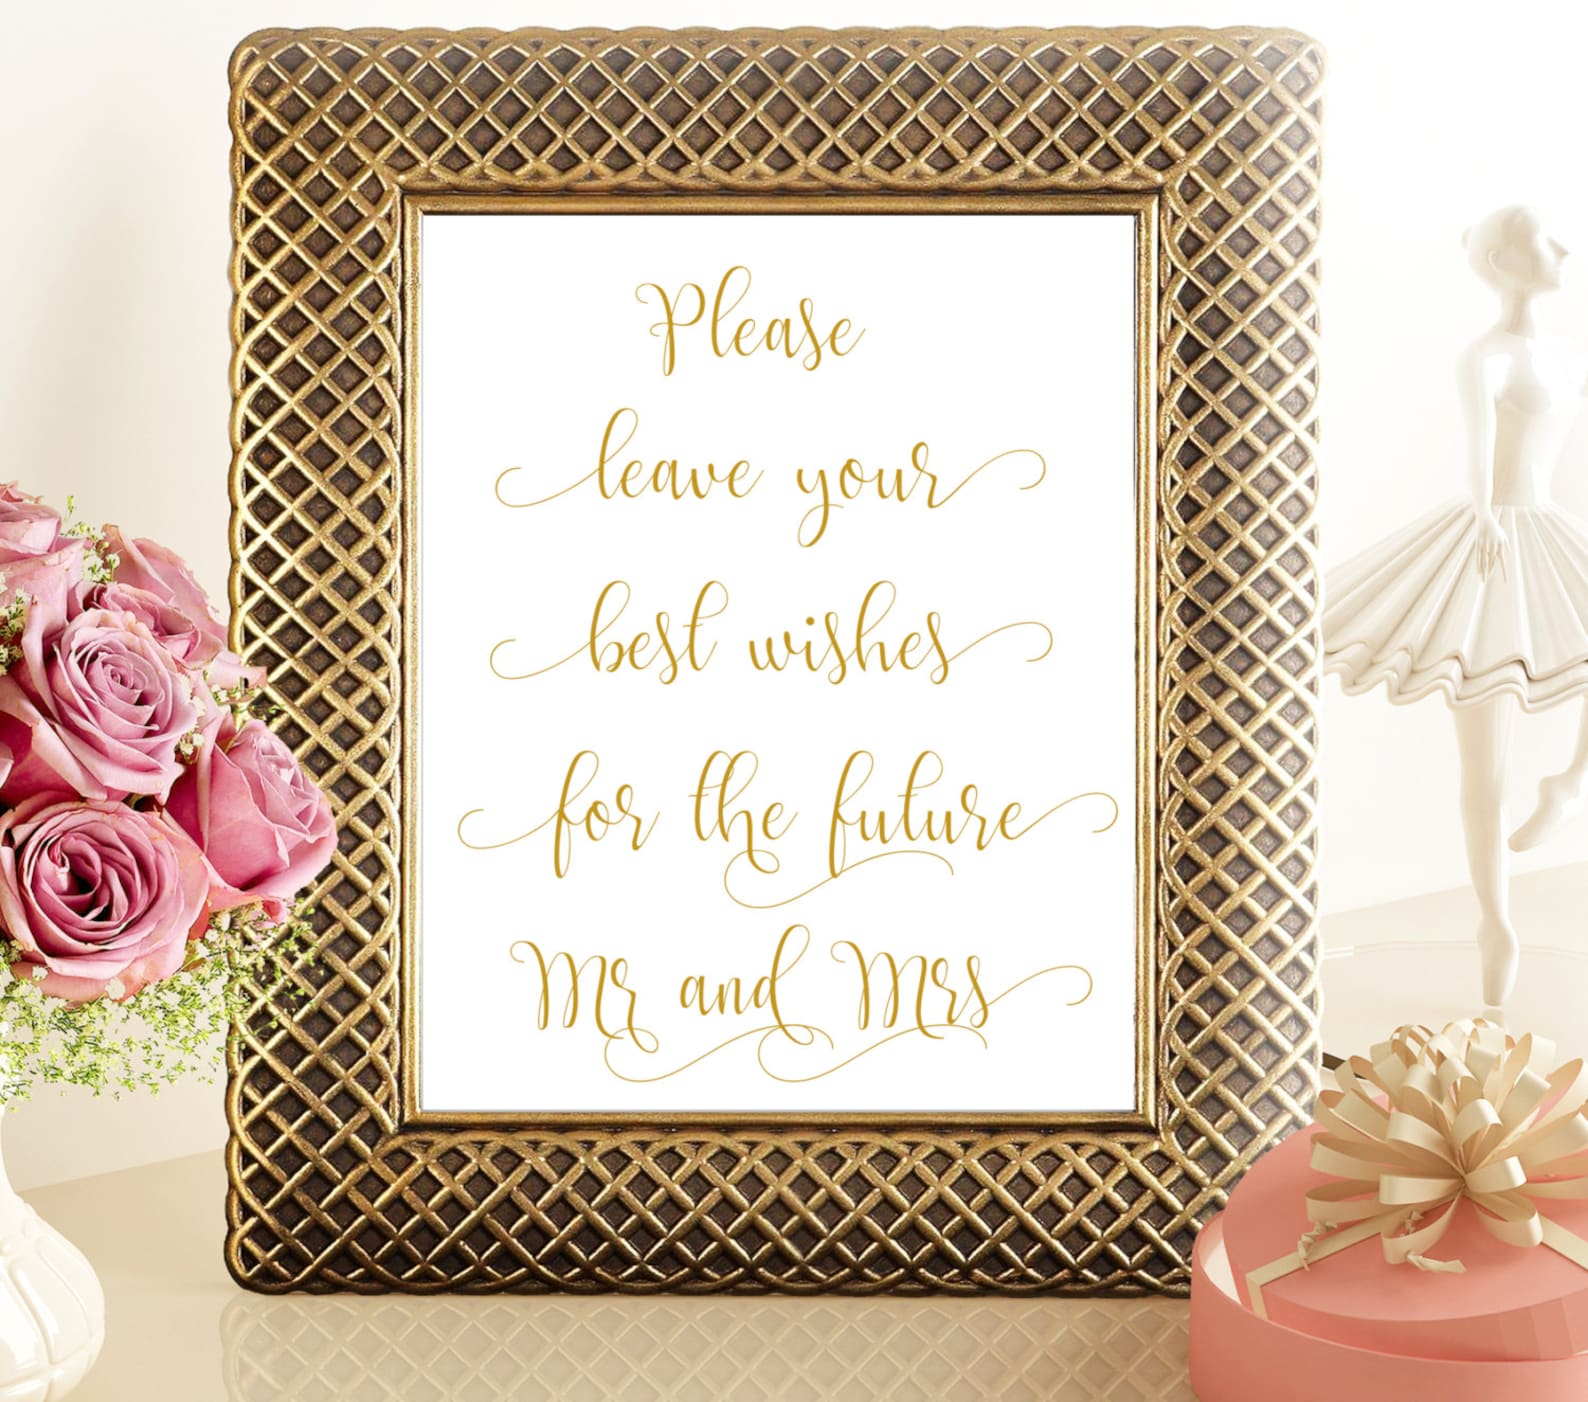 Please
leave your
best wishes
for the future
Mr and Mrs